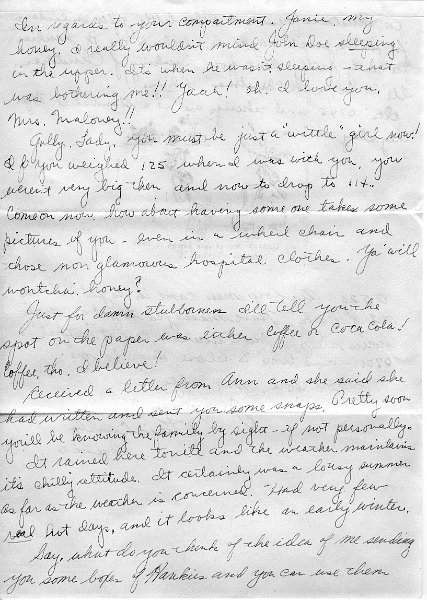 In regards to your compartment. Janie, my
honey, I really wouldn't mind John Doe sleeping
in the upper. It's when he wasn't sleeping - that
was bothering me!! Yeah! oh I love you,
Mrs. Maloney!!
Golly, Lady, you must be just a "wittle" girl now!
If you weighed 125 when I was with you, you
weren't very big then and now to drop to 114..
Come on now, how about having some one takes some
pictures of you - even in a wheel chair and
those non glamorous hospital clothes. Ya' will
wontcha' honey?
Just for damn stubborness I'll tell you the
spot on the paper was either Coffee or Coca Cola!
Coffee, tho, I believe!
Received a letter from Ann and she said she
had written and sent you some snaps. Pretty soon
you'll be knowing the family by sight - if not personally.
It rained here tonite and the weather maintains
it's chilly attitude. It certainly was a lousy summer
as far as the weather is concerned. Had very few
real hot days, and it looks like an early winter.
Say, what do you think of the idea of me sending
you some boxes of Hankies and you can use them